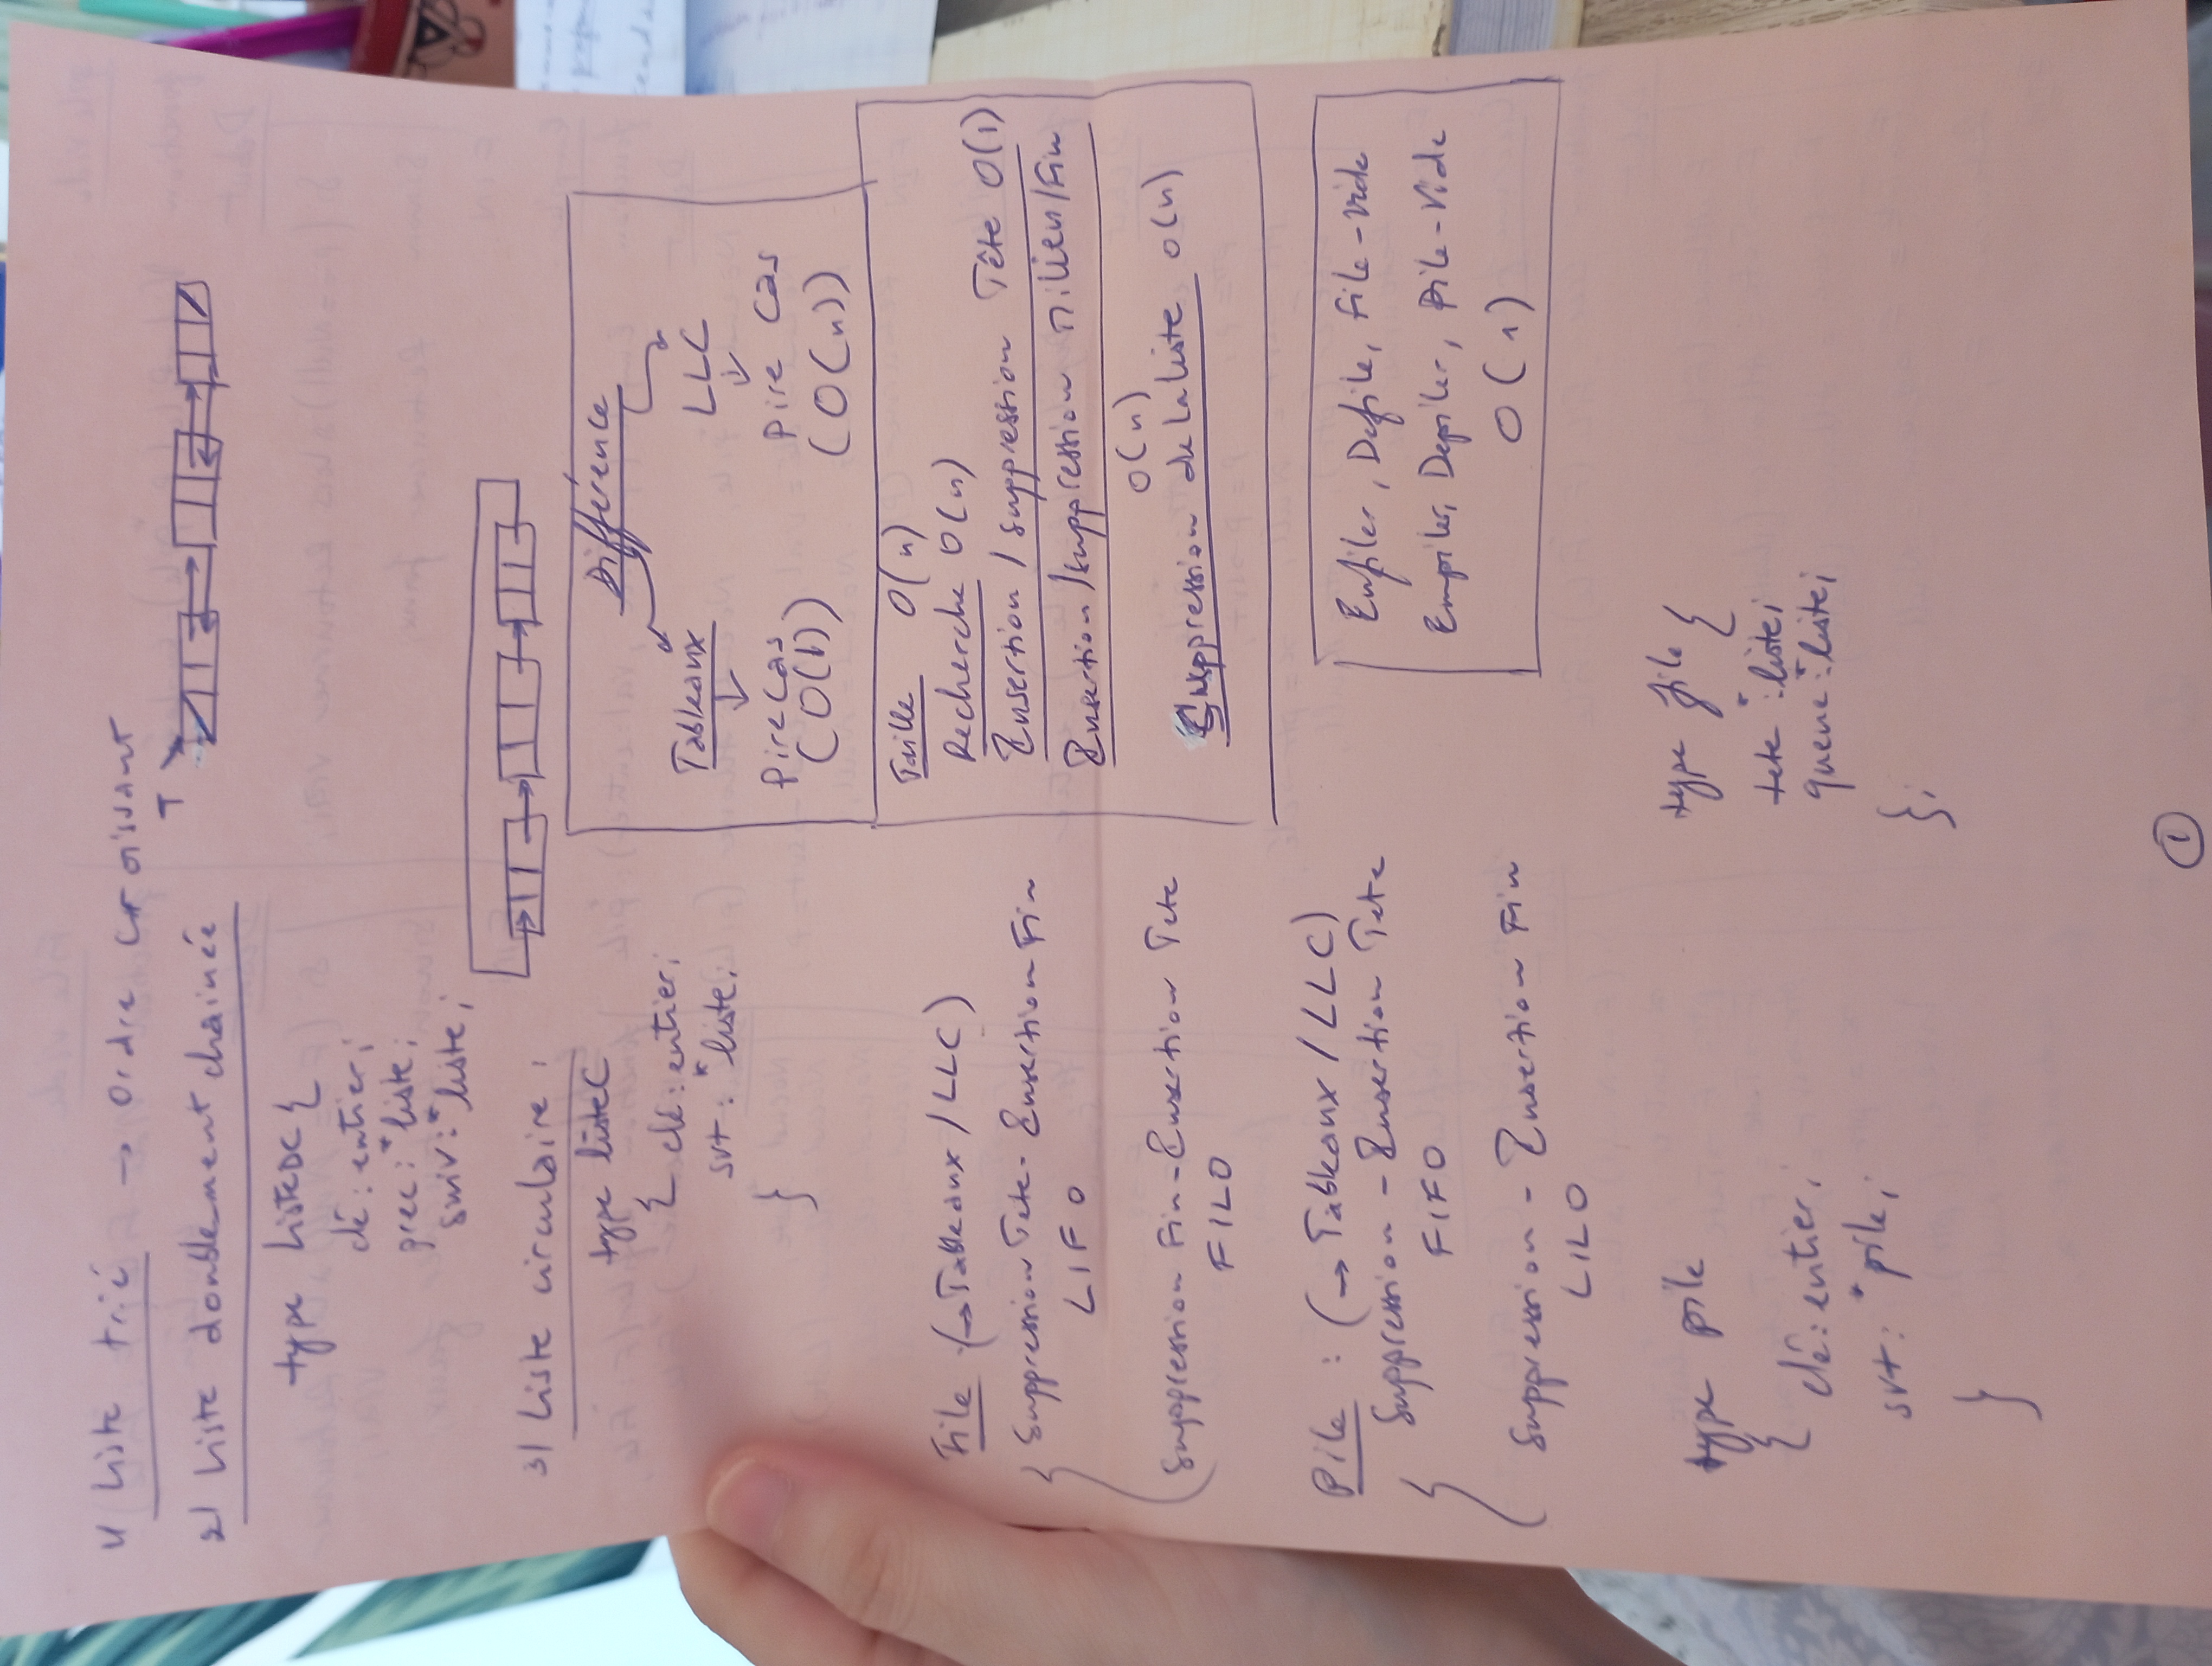 1) Liste trié → Ordre croissant
T
2) Liste doublement chainée
type ListeDC {
clé : entier;
prec : *liste;
suiv : *liste;
3) Liste circulaire :
type listeC
{ clé : entier;
svt : *liste;
}
Différence
Tableaux LLC
Pire Cas Pire Cas
(O(1)) (O(n))
Taille O(n)
Recherche O(n)
Insertion / suppression Tête O(1)
Insertion / suppression Milieu/Fin
O(n)
Suppression de la liste O(n)
File (→ Tableaux / LLC)
Suppression Tete - Insertion Fin
LIFO
Suppression Fin - Insertion Tete
FILO
Pile : (→ Tableaux / LLC)
Suppression - Insertion Tete
FIFO
Suppression - Insertion Fin
LILO
Enfiler, Defile, File-vide
Empiler, Depiler, Pile-Vide
O(1)
type pile
{
clé : entier;
svt : *pile;
}
type file {
tete : *liste;
queue : *liste;
};
1